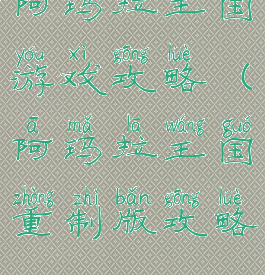 阿玛拉王国
yóu xì gōng lüè
游戏攻略（
ā mǎ lā wáng guó
阿玛拉王国
zhòng zhì bǎn gōng lüè
重制版攻略